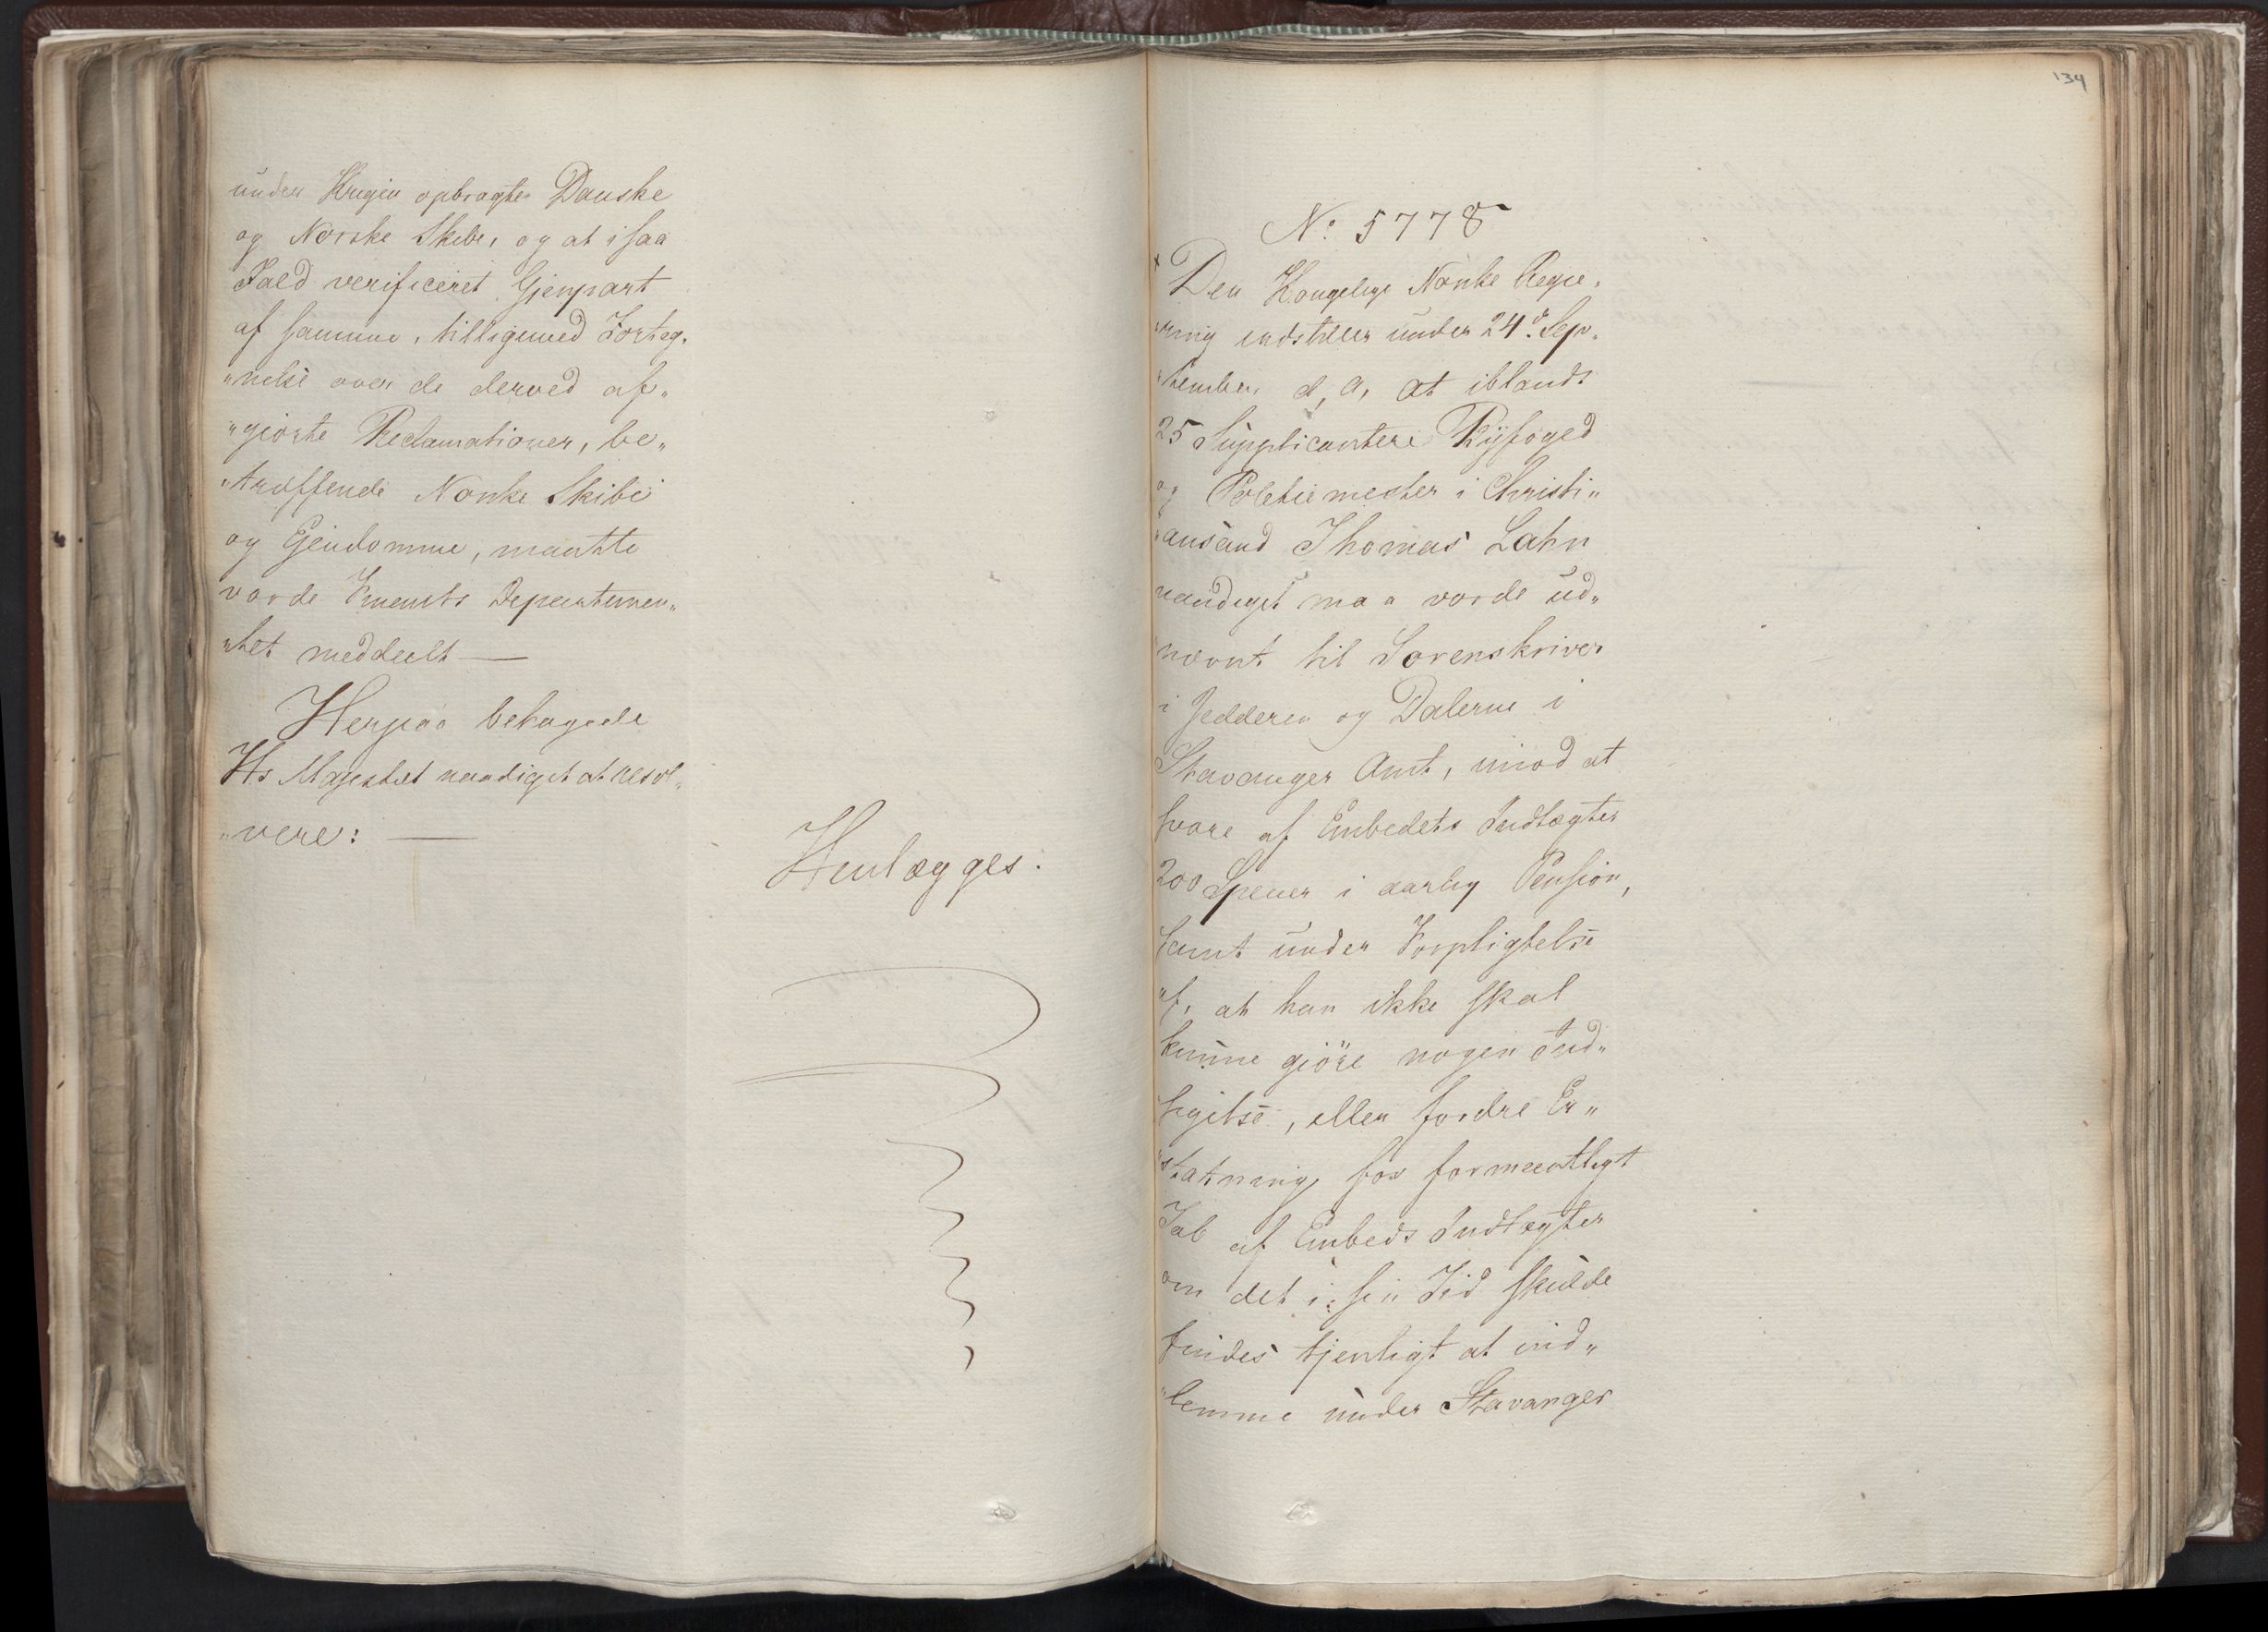 under Krigen opbragte Danske
og Norske Skibe, og at i saa
Fald verificeret Gjenpart
af samme, tilligemed Forteg„
„nelse over de derved af„
„giorte Reclamationer, be„
„træffende Norske Skibe
og Eiendomme, maatte
vorde Finents Departemen„
„tet meddeelt —
Herpaa behagede
Hs Majestæt naadigst at resol„
„vere: —
Henlægges.
134
No. 5778
Den Kongelige Norske Regie„
„ring indstiller under 24d. Sep„
„tember d, a, at iblandt
25 Supplicantere Byfoged
og Politiemester i Christi„
„ansand Thomas Lahn
naadigst maa vorde ud„
nævnt til Sorenskriver
i Jedderen og Dalerne i
Stavanger Amt, imod at
svare af Embedets Indtægter
200 Specier i aarlig Pension,
samt under Forpligtelse
af, at han ikke skal
kunne giöre nogen Ind„
sigelse, eller fordre Er„
„statning for formeentligt
Tab af Embeds Indtægter
om det i sin Tid skulde
findes tjenligt at ind„
„lemme under Stavanger